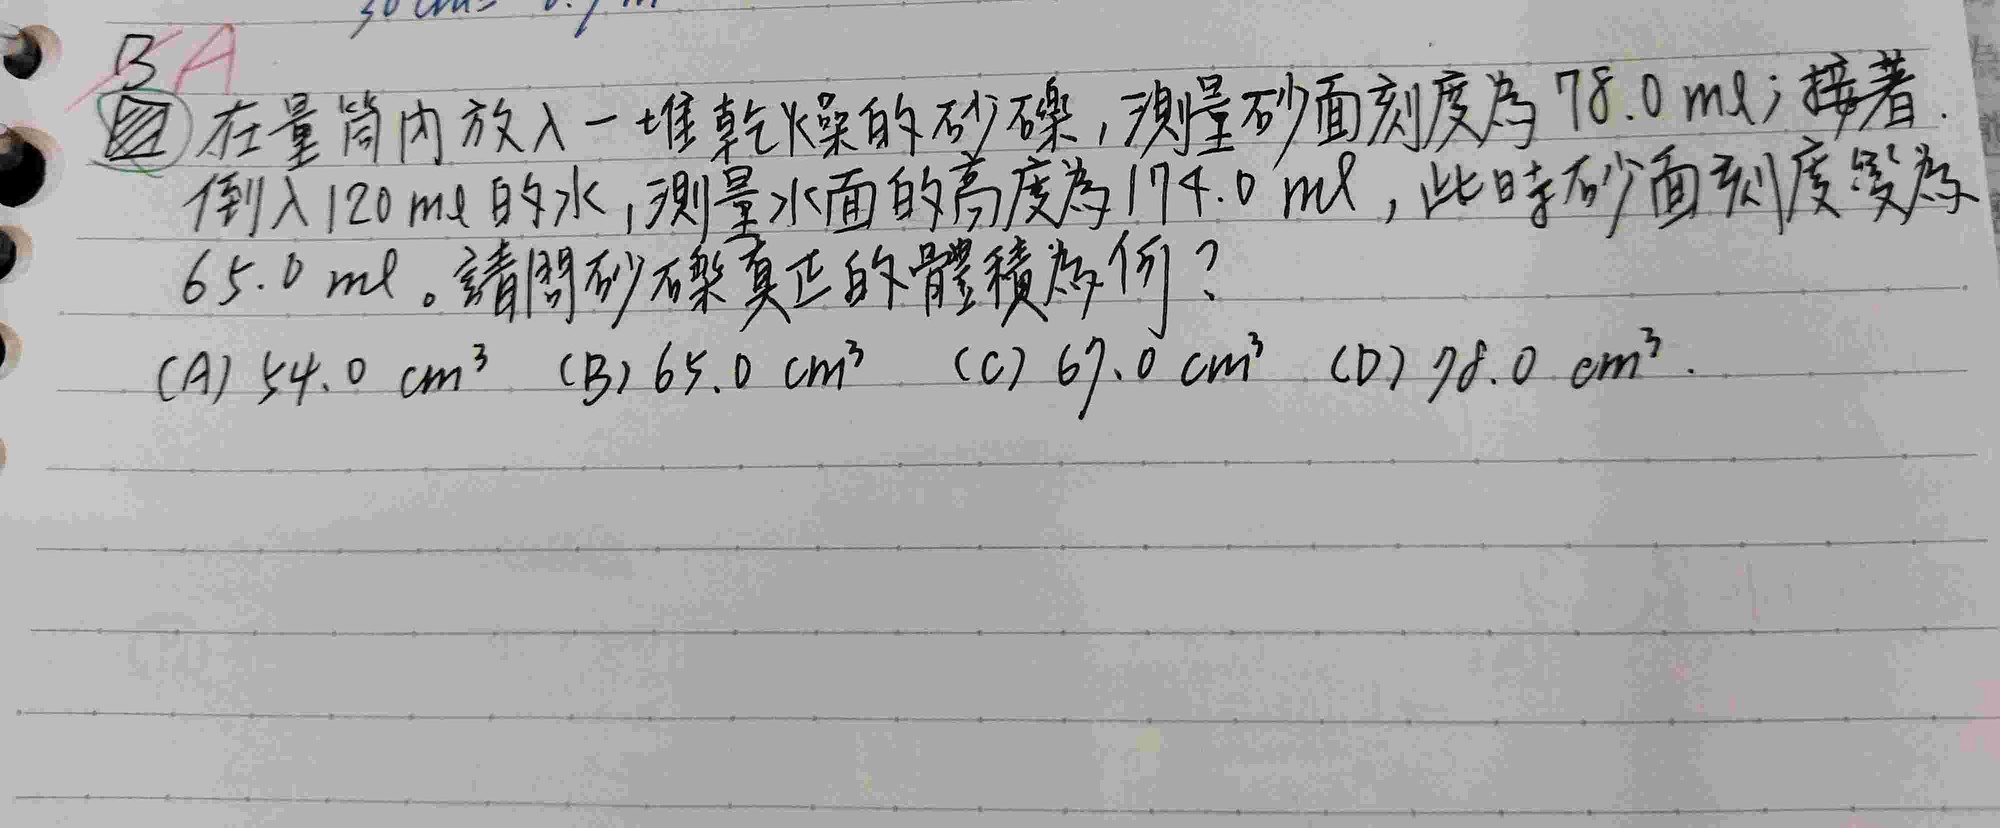 B A
在量筒內放入一堆乾燥的砂礫，測量砂面刻度為78.0 ml；接著
倒入120 ml的水，測量水面的高度為174.0 ml，此時砂面刻度變為
65.0 ml。請問砂礫真正的體積為何？
(A) 54.0 cm³ (B) 65.0 cm³ (C) 67.0 cm³ (D) 78.0 cm³.